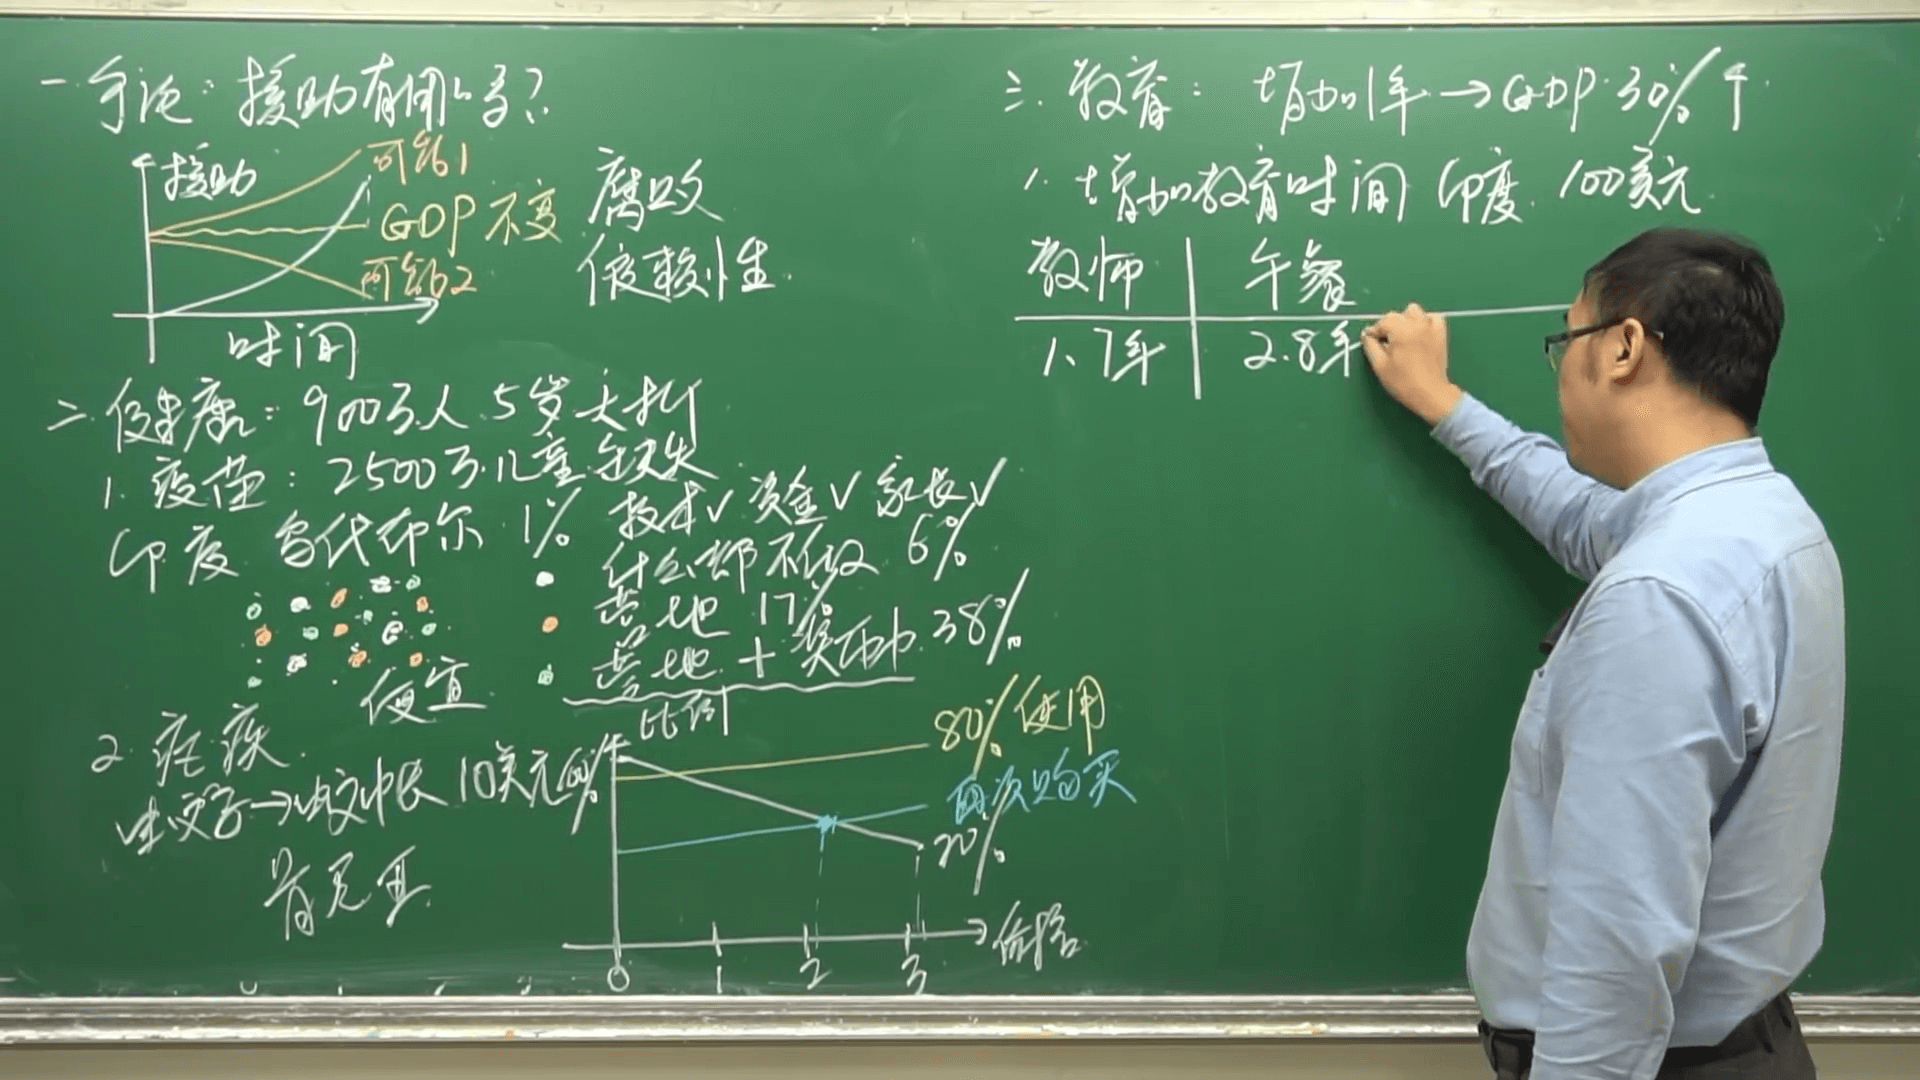 一.争论:援助有用吗?
援助
可能1
GDP不变
可能2
时间
腐败
依赖性
二.健康:900万人 5岁夭折
1.疫苗:2500万儿童缺失
印度 乌代布尔 1%
技术√ 资金√ 家长√
什么都不做 6%
营地 17%
营地+奖励 38%
便宜
2.疟疾
蚊帐 10美元
肯尼亚
比例
80%使用
再次购买
20%
0 1 2 3
价格
三.教育: 增加1年→GDP 30%↑
1.增加教育时间 印度 100美元
教师 午餐
1.7年 2.8年